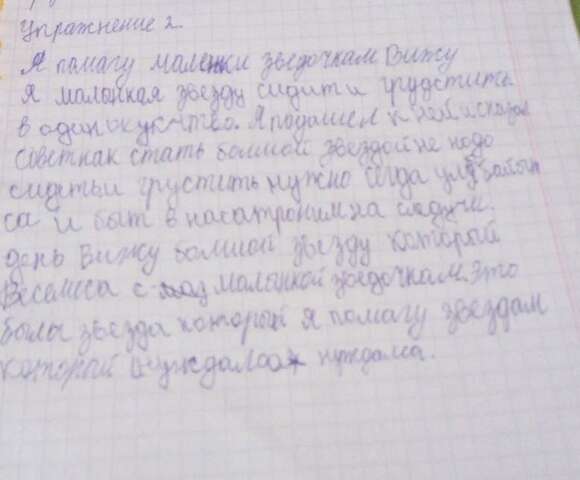 Упражнение 2.
Я помагу маленки звездочкам Вижу
Я малонкая звезду сидит и грудстить
в одинокуичтво. Я подашел к ней и сказал
советкак стать болшой звездой не надо
сидетьи грустить нужно всегда улыбайын
са и быт в насатроним на следучи.
день Вижу болшой звезду который
Веселиса с малонкой звездочкам. Это
былы звезда который я помагу звездам
которой нуждалса.